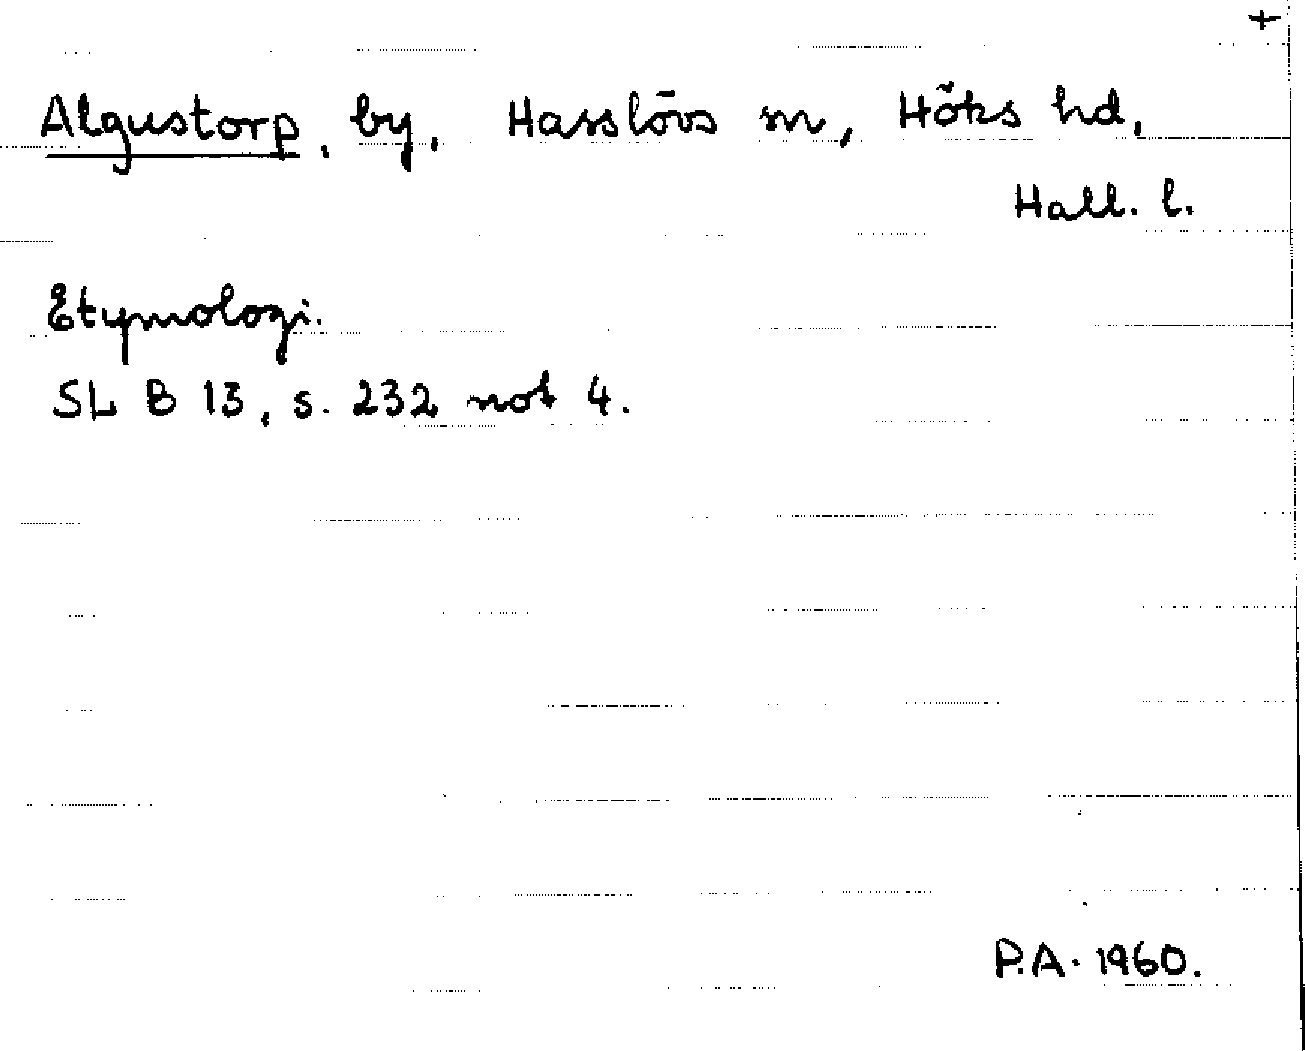 +
Algustorp, by, Hasslövs sn, Höks hd,
Hall. l.
Etymologi.
SL B 13, s. 232 not 4.
P.A. 1960.